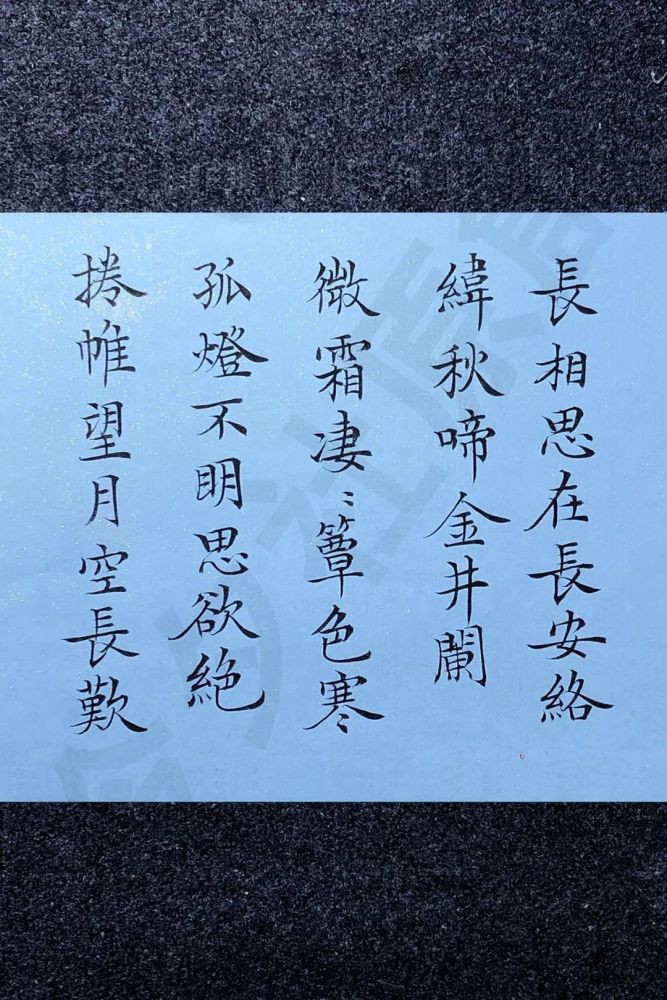 長相思在長安絡
緯秋啼金井闌
微霜凄〻簟色寒
孤燈不明思欲絕
捲帷望月空長歎